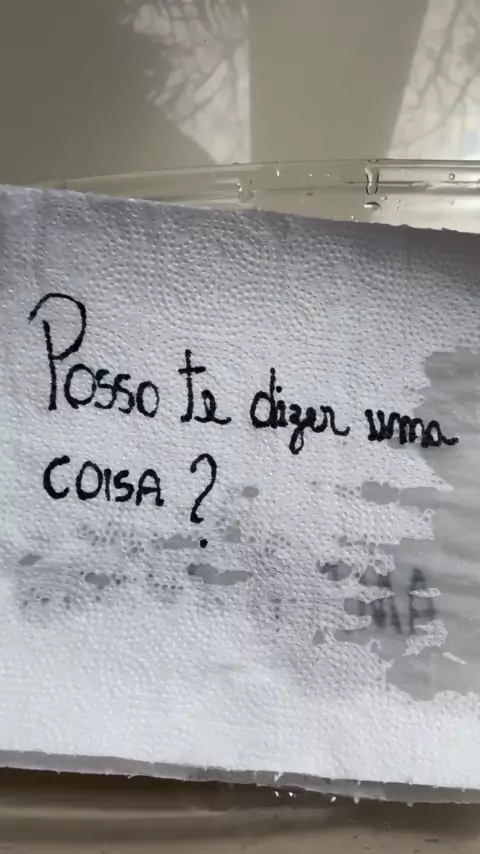 Posso te dizer uma
COISA?